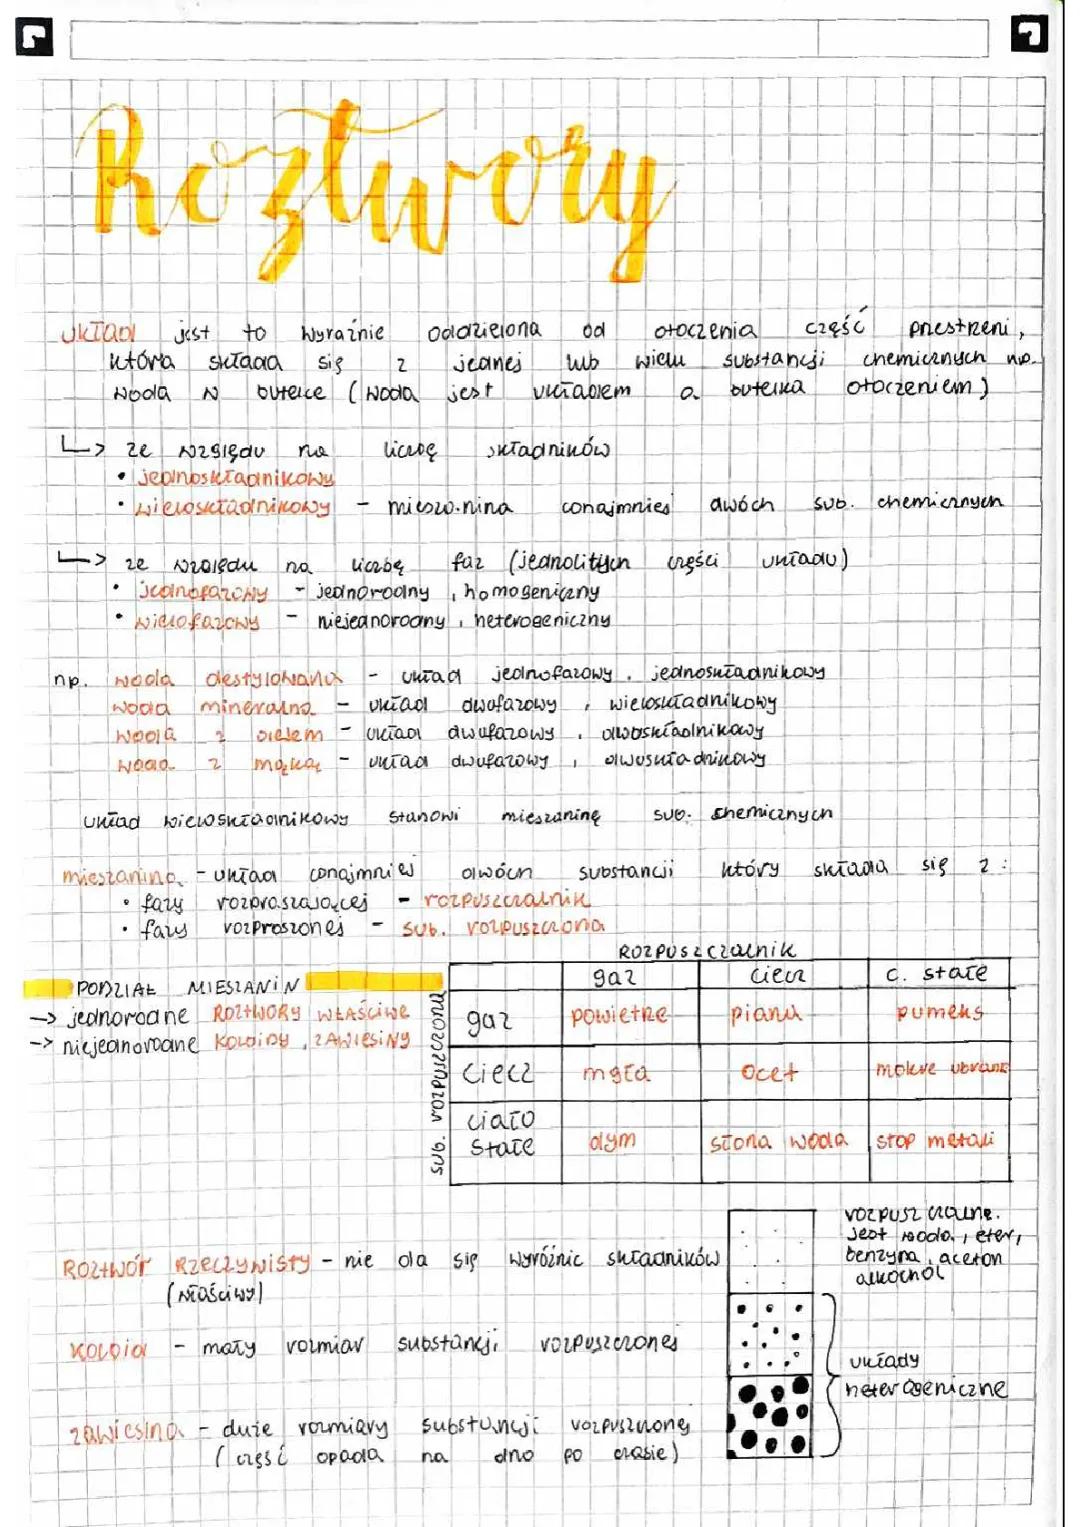 Roztwory
układ jest to wyraźnie oddzielona od otoczenia część przestrzeni,
która składa się z jednej lub wielu substancji chemicznych np.
woda w butelce (woda jest układem a butelka otoczeniem)
↳ ze względu na liczbę składników
• jednoskładnikowy
• wieloskładnikowy – mieszanina conajmniej dwóch sub. chemicznych
↳ ze względu na liczbę faz (jednolitych części układu)
• jednofazowy – jednorodny, homogeniczny
• wielofazowy – niejednorodny, heterogeniczny
np. woda destylowana – układ jednofazowy, jednoskładnikowy
woda mineralna – układ dwufazowy, wieloskładnikowy
woda z olejem – układ dwufazowy, dwuskładnikowy
woda z mąką – układ dwufazowy, dwuskładnikowy
układ wieloskładnikowy stanowi mieszaninę sub. chemicznych
mieszanina – układ conajmniej dwóch substancji który składa się z:
• fazy rozpraszającej – rozpuszczalnik
• fazy rozproszonej – sub. rozpuszczona
PODZIAŁ MIESZANIN
→ jednorodne ROZTWORY WŁAŚCIWE
→ niejednorodne KOLOIDY, ZAWIESINY
ROZPUSZCZALNIK
gaz ciecz c. stałe
sub. rozpuszczona
gaz powietrze piana pumeks
ciecz mgła ocet mokre ubranie
ciało
stałe dym słona woda stop metali
rozpuszczalne.
jest woda, eter,
benzyna, aceton
alkochol
ROZTWÓR RZECZYWISTY – nie da się wyróżnic składników
(właściwy)
KOLOID – mały rozmiar substancji rozpuszczonej
układy
heterogeniczne
zawiesina – duże rozmiary substancji rozpuszczonej
(część opada na dno po czasie)